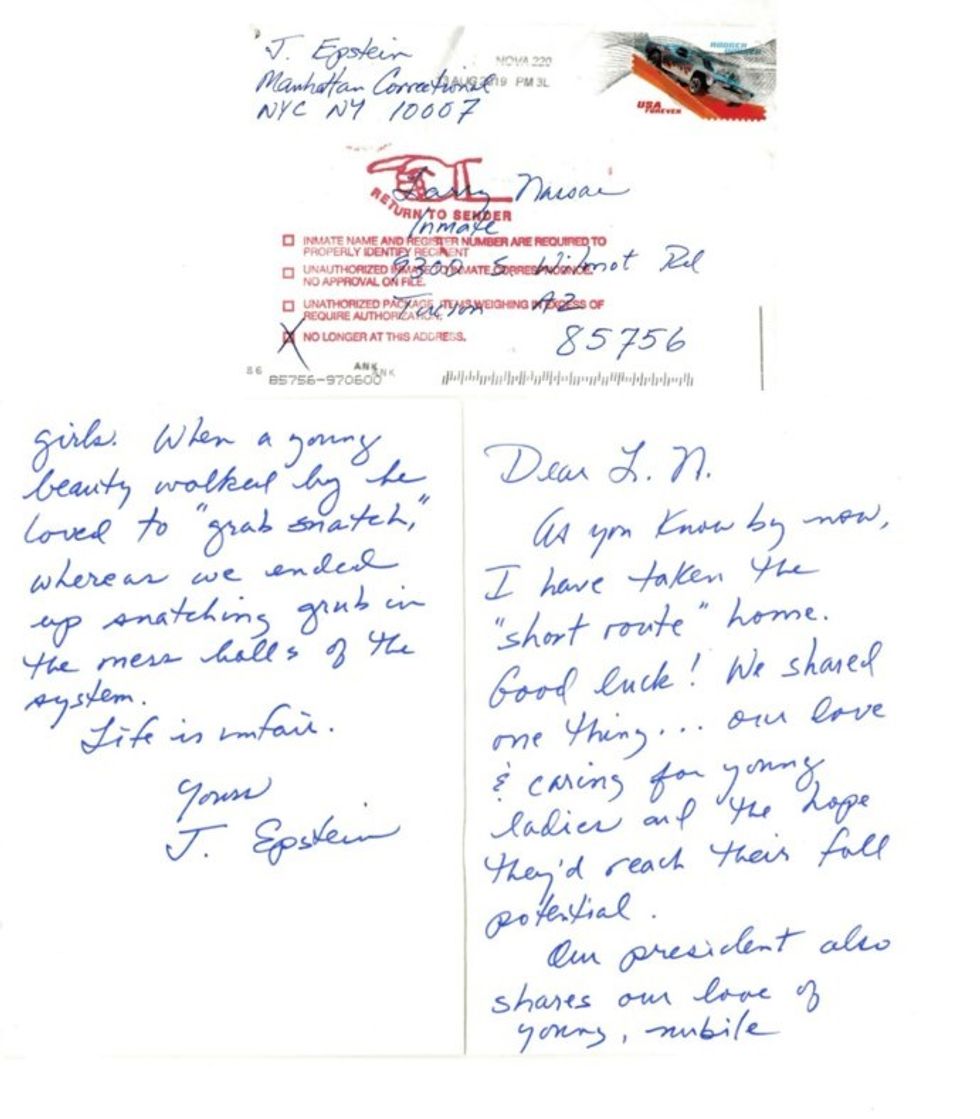 J. Epstein
Manhattan Correctional
NYC NY 10007
NOVA 220
AUG 2019 PM 3L
USA
FOREVER
RETURN TO SENDER
Larry Nassar
Inmate
9300 S. Wilmot Rd
Tucson AZ
85756
INMATE NAME AND REGISTER NUMBER ARE REQUIRED TO
PROPERLY IDENTIFY RECIPIENT
UNAUTHORIZED INMATE TO INMATE CORRESPONDENCE.
NO APPROVAL ON FILE.
UNATHORIZED PACKAGE, ITEMS WEIGHING IN EXCESS OF
REQUIRE AUTHORIZATION.
X NO LONGER AT THIS ADDRESS.
86
ANK
ANK
85756-970600
Dear L. N.
As you know by now,
I have taken the
"short route" home.
Good luck! We shared
one thing... our love
& caring for young
ladies and the hope
they'd reach their full
potential.
Our president also
shares our love of
young, nubile
girls. When a young
beauty walked by he
loved to "grab snatch,"
whereas we ended
up snatching grub in
the mess halls of the
system.
Life is unfair.
Yours
J. Epstein